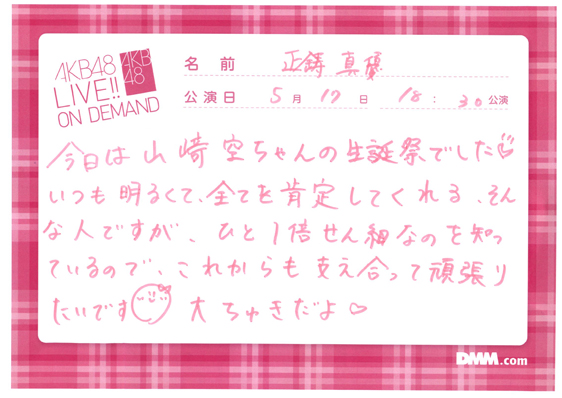 AKB48
LIVE!!
ON DEMAND
AKB
48
名 前 正鋳 真優
公演日 5月 17日 18:30公演
今日は山﨑空ちゃんの生誕祭でした
いつも明るくて、全てを肯定してくれる、そん
な人ですが、ひと1倍せん細なのを知っ
ているので、これからも支え合って頑張り
たいです 大ちゅきだよ♡
DMM.com